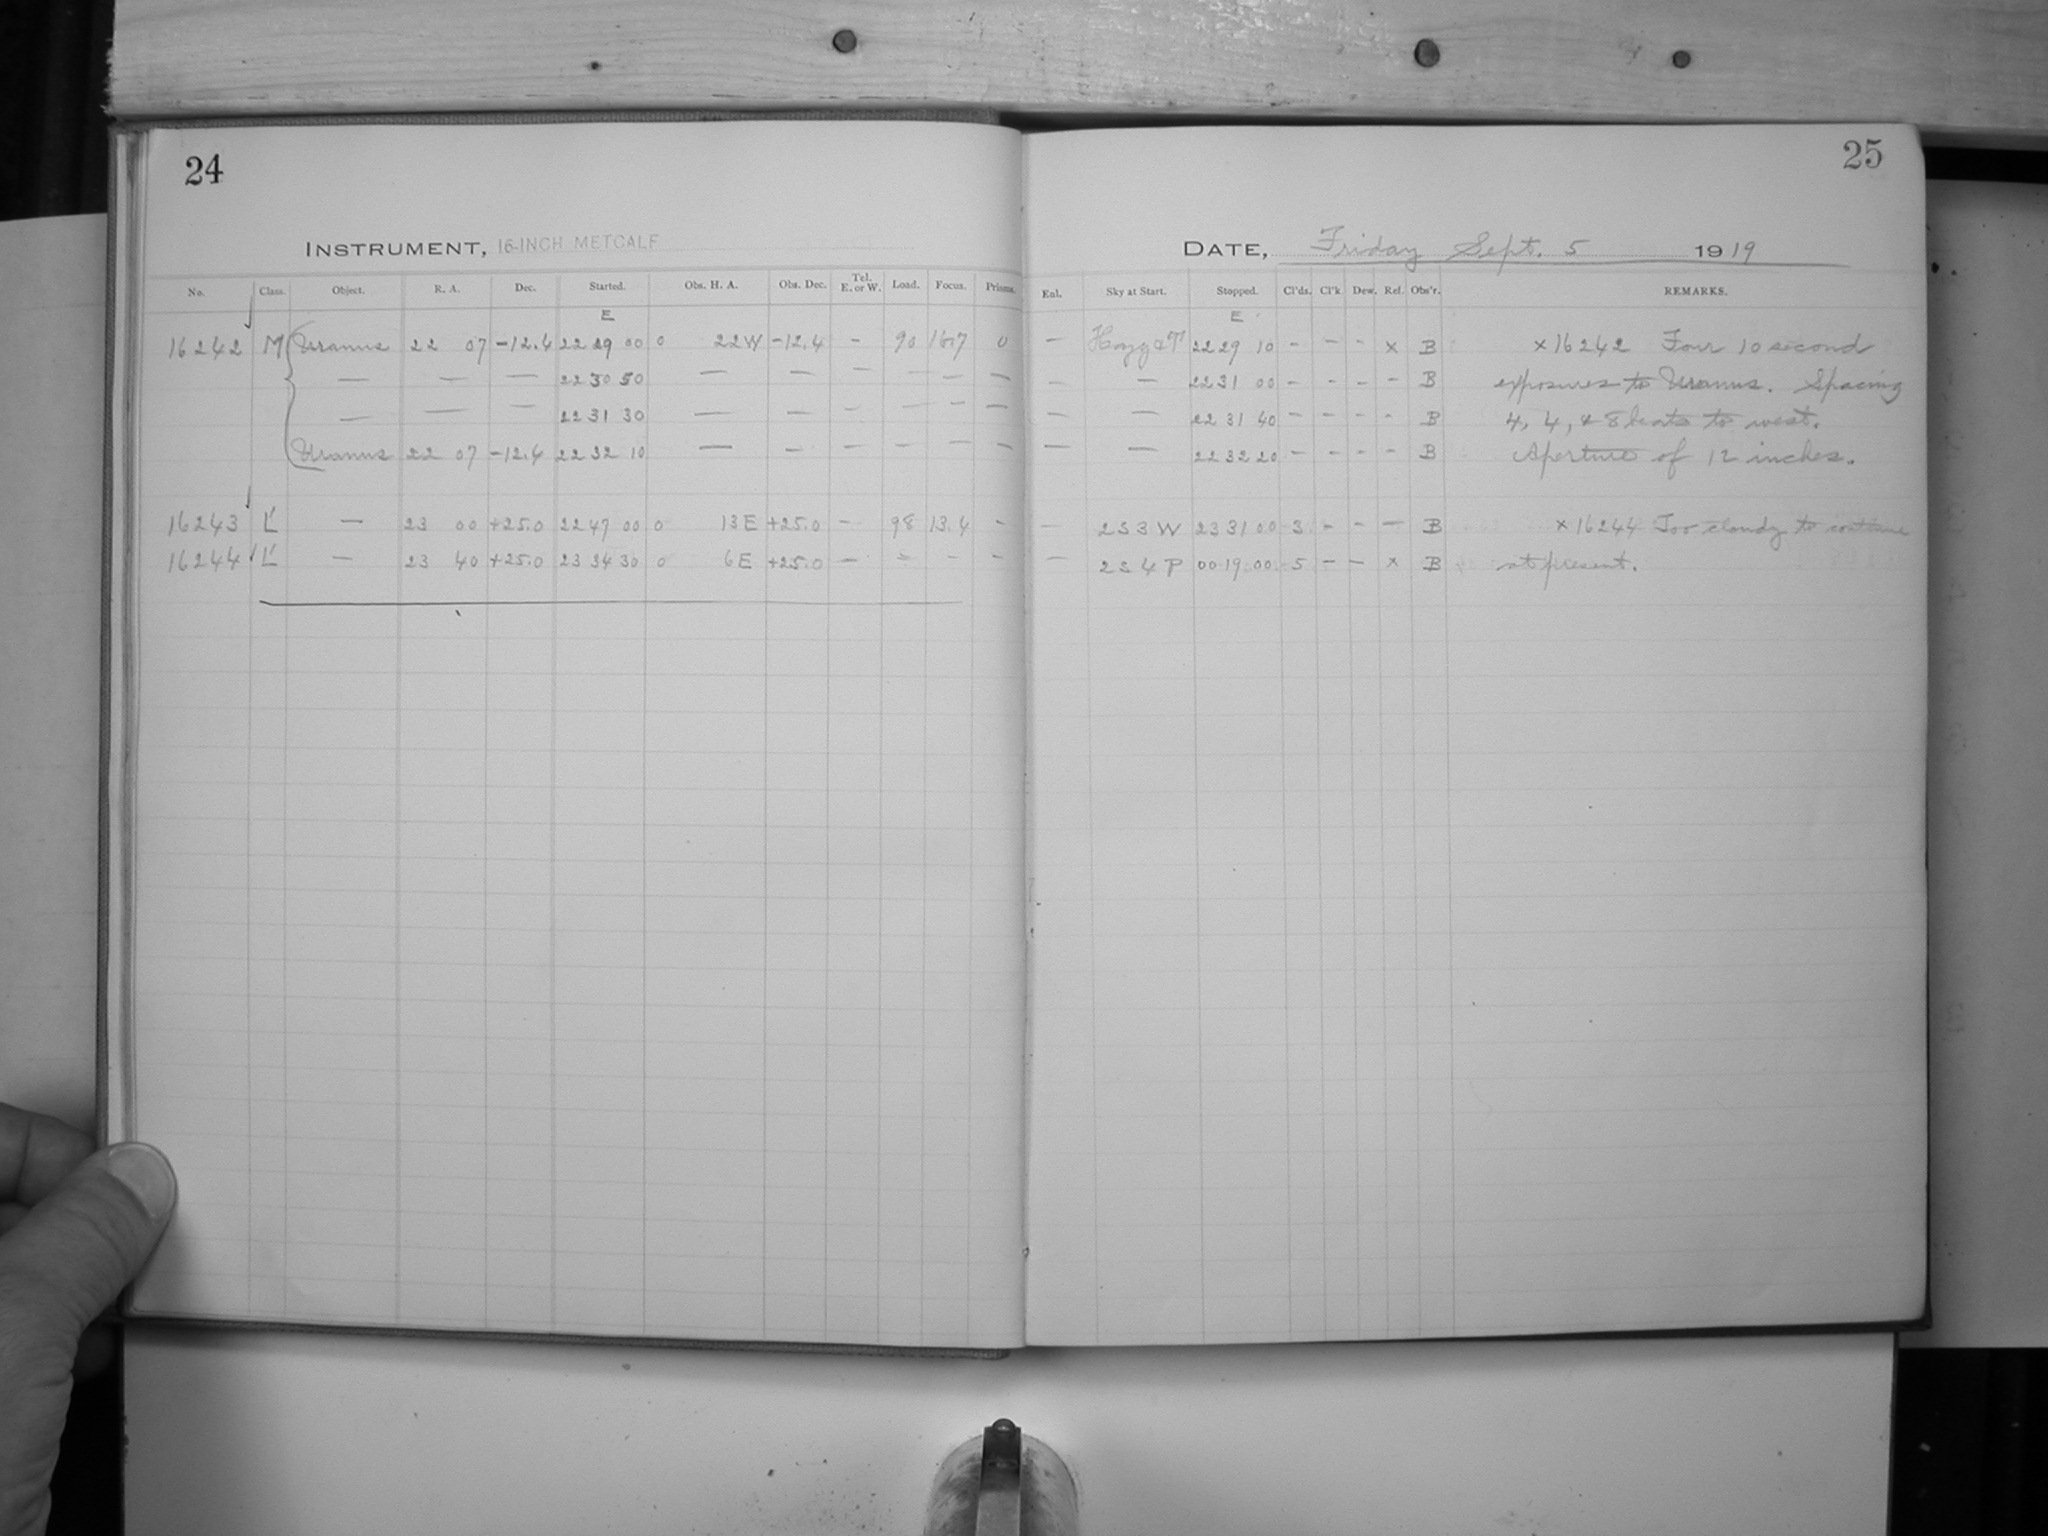 24
25
INSTRUMENT, 16-INCH METCALF
DATE, Friday Sept. 5 1919
No. Class. Object. R. A. Dec. Started. Obs. H. A. Obs. Dec. Tel. E. or W. Load. Focus. Prisms. Enl. Sky at Start. Stopped. Cl'ds. Cl'k Dew. Ref. Obs'r. REMARKS.
E E
16242 M Uranus 22 07 -12.4 22 29 00 0 22W -12.4 - 90 16.7 0 — 22 29 10 - - - x B x16242 Four 10 second
— — — 22 30 50 — — — — — — — — 22 31 00 - - - - B exposures to Uranus. Spacing
— — — 22 31 30 — — — — — — — — 22 31 40 - - - - B 4, 4, & 8 beats to west.
Uranus 22 07 -12.4 22 32 10 — — — — — — — — 22 32 20 - - - - B Aperture of 12 inches.
16243 L' — 23 00 +25.0 22 47 00 0 13E +25.0 - 98 13.4 - — 2S3W 23 31 00 3 - - - B x16244 Too cloudy to continue
16244 L' — 23 40 +25.0 23 34 30 0 6E +25.0 — - - - — 2S4P 00 19 00 5 - - x B at present.